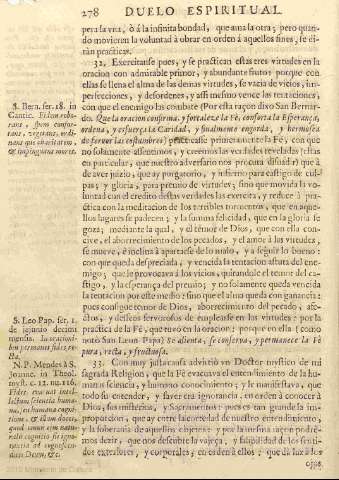 278 DUELO ESPIRITUAL
pera la vna, ò à la infinita bondad, que ama la otra; pero quan-
do movieren la voluntad à obrar en orden à aquellos fines, se di-
ràn practicas.
32. Exercitanse pues, y se practican estas tres virtudes en la
oracion con admirable primor, y abundante fruto: porque con
ellas se llena el alma de las demas virtudes, se vacia de vicios, im-
perfecciones, y desordenes, y assi mismo vence las tentaciones,
con que el enemigo las combate (Por esta raçon dixo San Bernar-
do. Que la oracion conforma, y fortaleze la Fè, conforta la Esperança,
ordena, y esfuerça la Caridad, y finalmente engorda, y hermosea
de fervor las costumbres) practicase primeramente la Fè, con que
no solamente assentimos, y creemos las verdades reveladas (estas
en particular, que nuestro adversario nos procura disuadir) que à
de aver juizio, que ay purgatorio, y infierno para castigo de cul-
pas; y gloria, para premio de virtudes; sino que movida la vo-
luntad con el credito destas verdades las exercita, y reduce à pra-
ctica con la meditacion de los terribles tormentos, que en aque-
llos lugares se padecen; y la summa felicidad, que en la gloria se
goza; mediante la qual, y el témor de Dios, que con ella con-
cive, el aborrecimiento de los pecados, y el amor à los virtudes,
se mueve, è inclina à apartarse de lo malo, y à seguir lo bueno:
con que queda despreciada, y vencida la tentacion astuta del ene-
migo; que le provocava à los vicios, quitandole el temor del cas-
tigo, y la esperança del premio; y no solamente queda vencida
la tentacion por este medio; sino que el alma queda con ganancia;
pues consigue temor de Dios, aborrecimiento del pecado, afe-
ctos, y desseos fervorosos de emplearse en las virtudes: por la
practica de la Fè, que tuvo en la oracion: porque en ella (como
notò San Leon Papa) Se alienta, se conserva, y permanece la Fè
pura, recta, y fructuosa.
33. Con muy justa causa advirtiò vn Doctor mystico de mi
sagrada Religion, que la Fè evacuava el entendimiento de la hu-
mana sciencia, y humano conocimiento; y le manifestava, que
todo su entender, y saver era ignorancia, en orden à conocer à
Dios, sus misterios, y Sacramentos: pues es tan grande la im-
proporcion, que ay entre la cortedad de nuestro entendimiento,
y la soberania de aquellos objetos: y por la mesma raçon podrè-
mos dezir, que nos descubre la vajeça, y inhabilidad de los senti-
dos exteriores, y corporales, en orden à ellos; que dà luz à los
S. Bera. ser. 18. in
Cantic. Fidem robo-
rans, spem confor-
tans, vegetans, ordi-
nans que charitatem,
& impinguans mores.
S. Leo Pap. ser. 1.
de jejunio decimi
mensis. In oracioni-
bus permanet fides re-
cta.
N. P. Mendes à S.
Joanne. in Theol.
myst. c. 12. nu. 116.